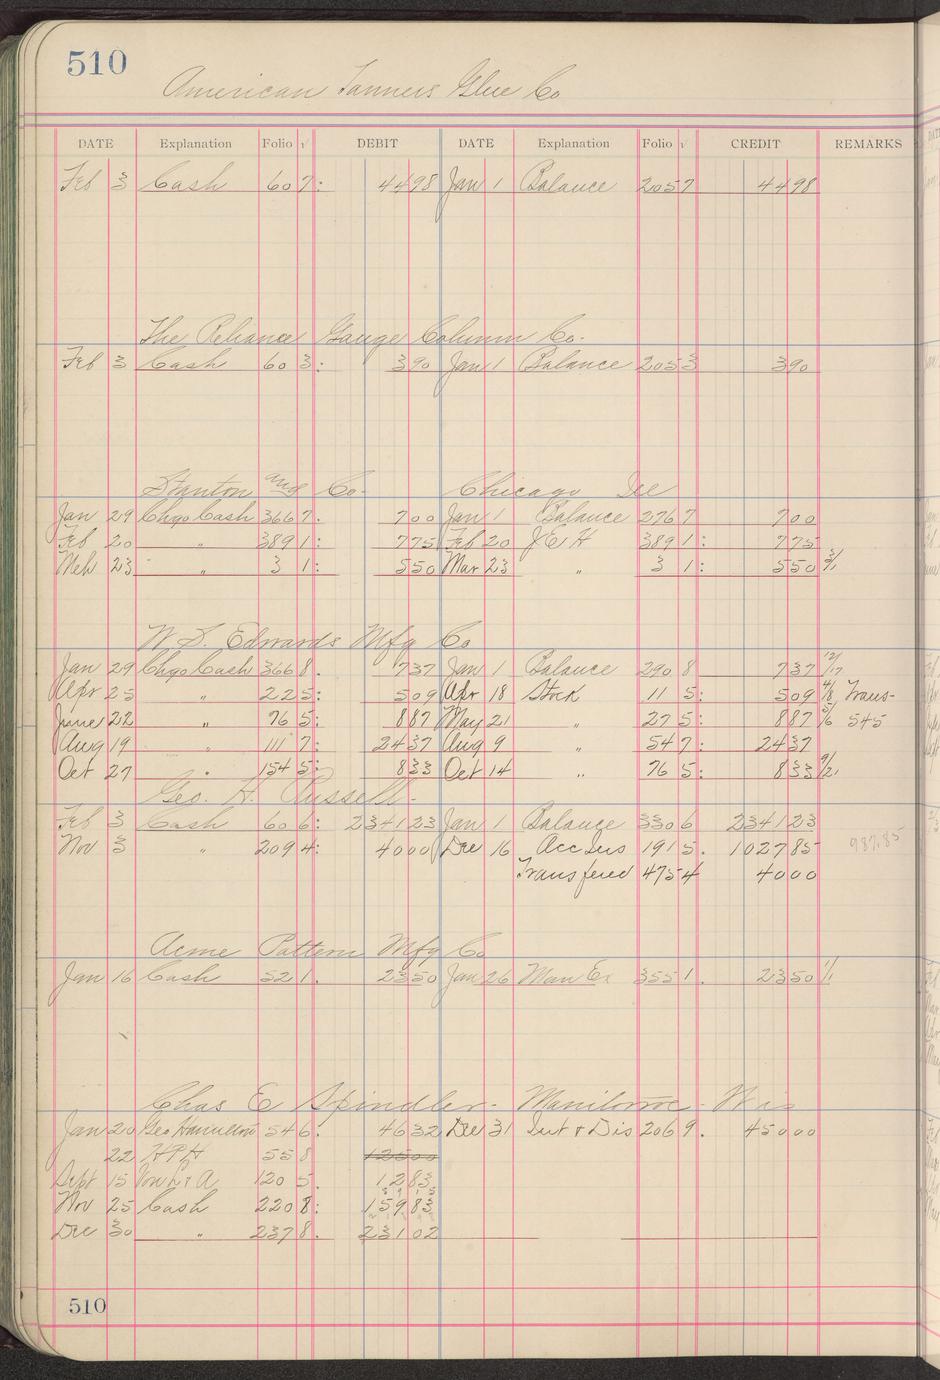 510
American Tanners Glue Co
DATE Explanation Folio √ DEBIT DATE Explanation Folio √ CREDIT REMARKS
Feb 3 Cash 60 7: 44 98 Jan 1 Balance 205 7 44 98
The Reliance Gauge Column Co.
Feb 3 Cash 60 3: 3 90 Jan 1 Balance 205 3 3 90
Stanton and Co- Chicago Ill
Jan 29 Chgo Cash 366 7. 7 00 Jan 1 Balance 276 7 7 00
Feb 20 " 389 1: 7 75 Feb 20 J E H 389 1: 7 75
Mch 23 " 3 1: 5 50 Mar 23 " 3 1: 5 50 3/1
W. S. Edwards Mfg Co
Jan 29 Chgo Cash 366 8. 7 37 Jan 1 Balance 290 8 7 37 12/17
Apr 25 " 22 5: 5 09 Apr 18 Stock 11 5: 5 09 4/8 Trans-
June 22 " 76 5: 8 87 May 21 " 27 5: 8 87 5/6 545
Aug 19 " 111 7: 24 37 Aug 9 " 54 7: 24 37
Oct 27 " 154 5: 8 33 Oct 14 " 76 5: 8 33 9/21
Geo. H. Russell-
Feb 3 Cash 60 6: 2341 23 Jan 1 Balance 330 6 2341 23
Nov 3 " 209 4: 40 00 Dec 16 Acc Sus 191 5. 1027 85 987.85
Transfered 475 4 40 00
Acme Pattern Mfg Co
Jan 16 Cash 52 1. 23 50 Jan 26 Man Ex 355 1. 23 50 1/1
Chas E Spindler- Manitowoc- Wis
Jan 20 Geo Hamilton 54 6. 46 32 Dec 31 Int & Dis 206 9. 450 00
22 H P H 55 8 125 00
Sept 15 120 5. 12 83
Nov 25 Cash 220 8: 159 83
Dec 30 " 237 8. 231 02
510